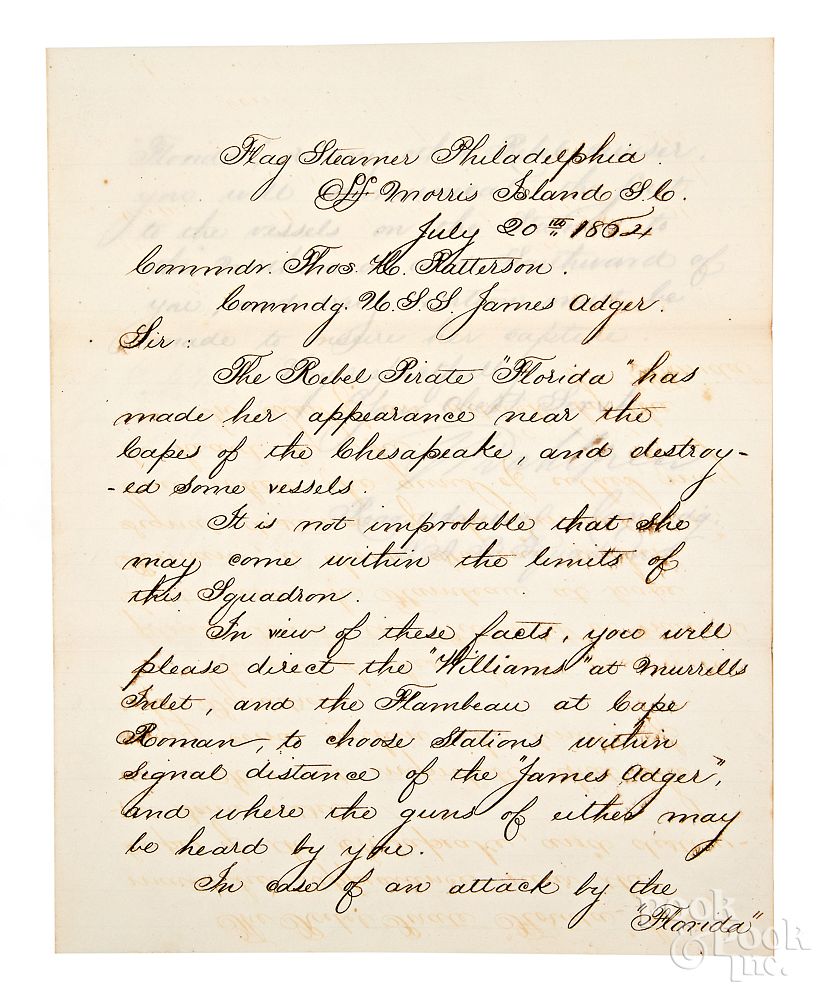 Flag Steamer Philadelphia.
Off Morris Island S.C.
July 20th 1864
Commdr. Thos H. Patterson.
Commdg. U.S.S. James Adger.
Sir:
The Rebel Pirate "Florida" has
made her appearance near the
Capes of the Chesapeake, and destroy-
-ed some vessels.
It is not improbable that she
may come within the limits of
this Squadron.
In view of these facts, you will
please direct the "Williams" at Murrells
Inlet, and the Flambeau at Cape
Roman, to choose Stations within
signal distance of the "James Adger",
and where the guns of either may
be heard by you.
In case of an attack by the
"Florida"
Pook
& Pook
Inc.